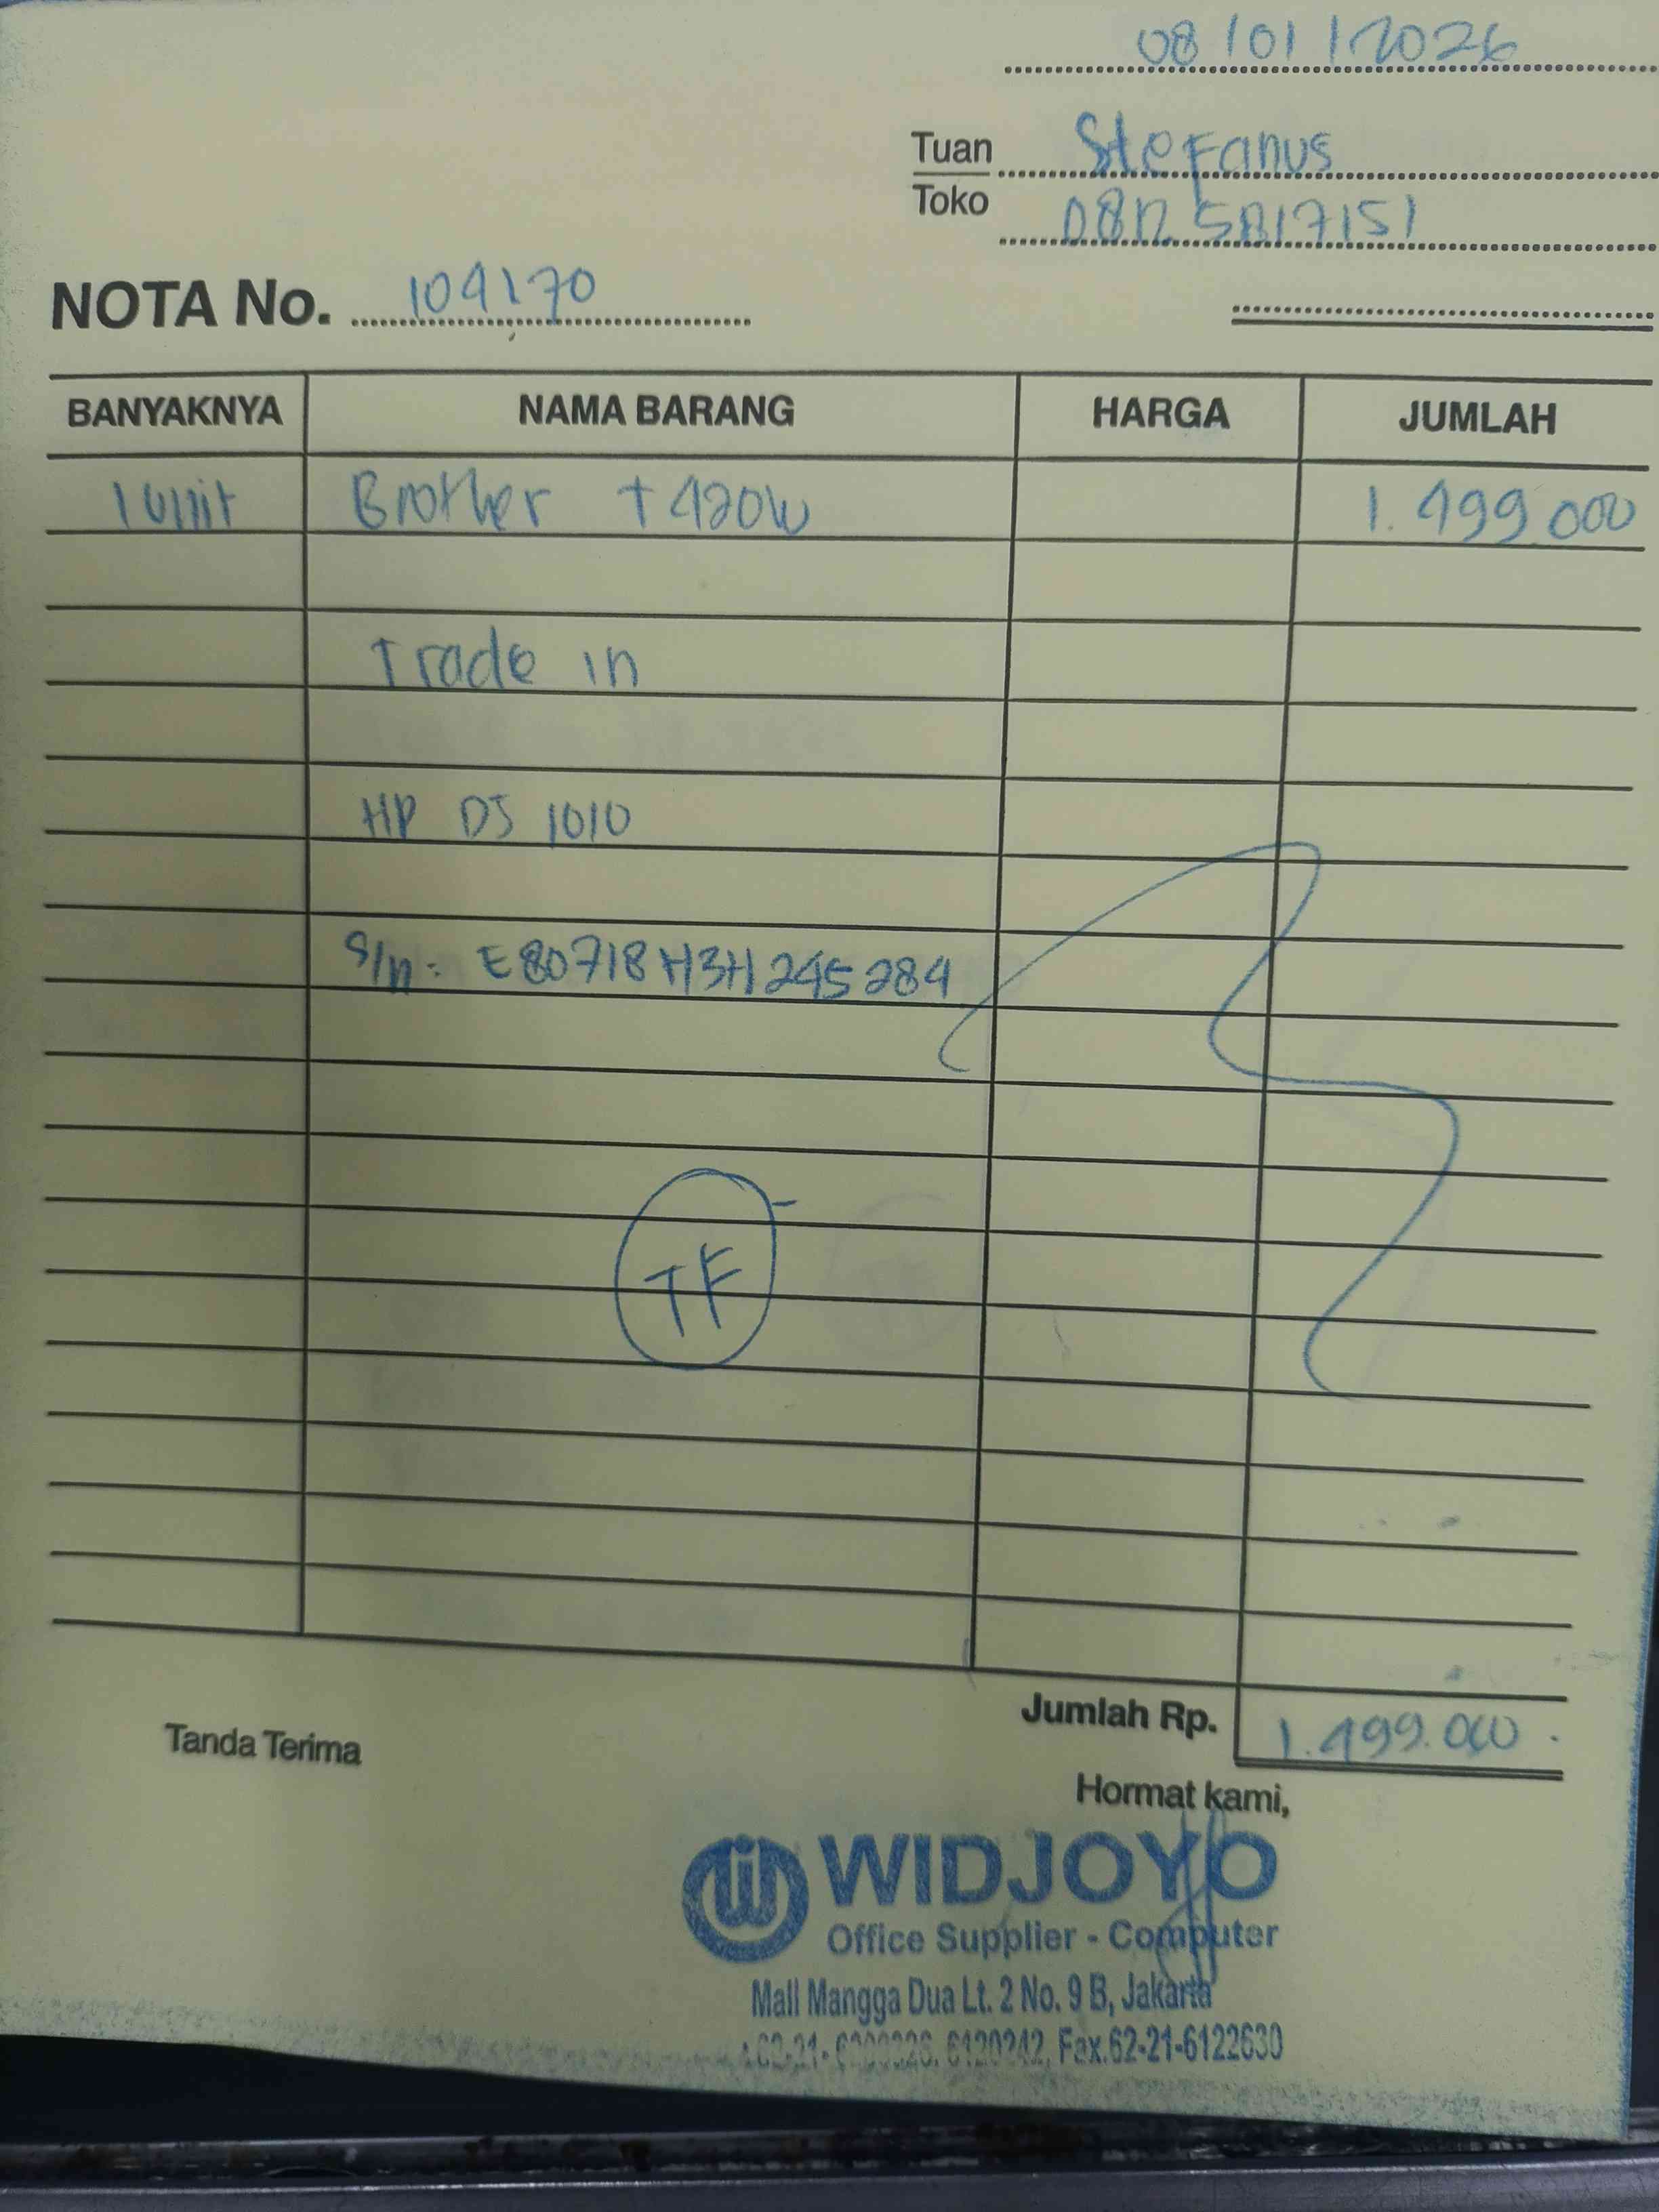 08/01/2026
Tuan Stefanus
Toko
NOTA No. 104170
BANYAKNYA NAMA BARANG HARGA JUMLAH
1 Unit Brother T420W 1.499.000
Trade in
HP DJ 1010
S/n: E80718H3H245284
TF
Jumlah Rp. 1.499.000
Tanda Terima
Hormat kami,
WIDJOYO
Office Supplier - Computer
Mall Mangga Dua Lt. 2 No. 9 B, Jakarta
6120242, Fax.62-21-6122630